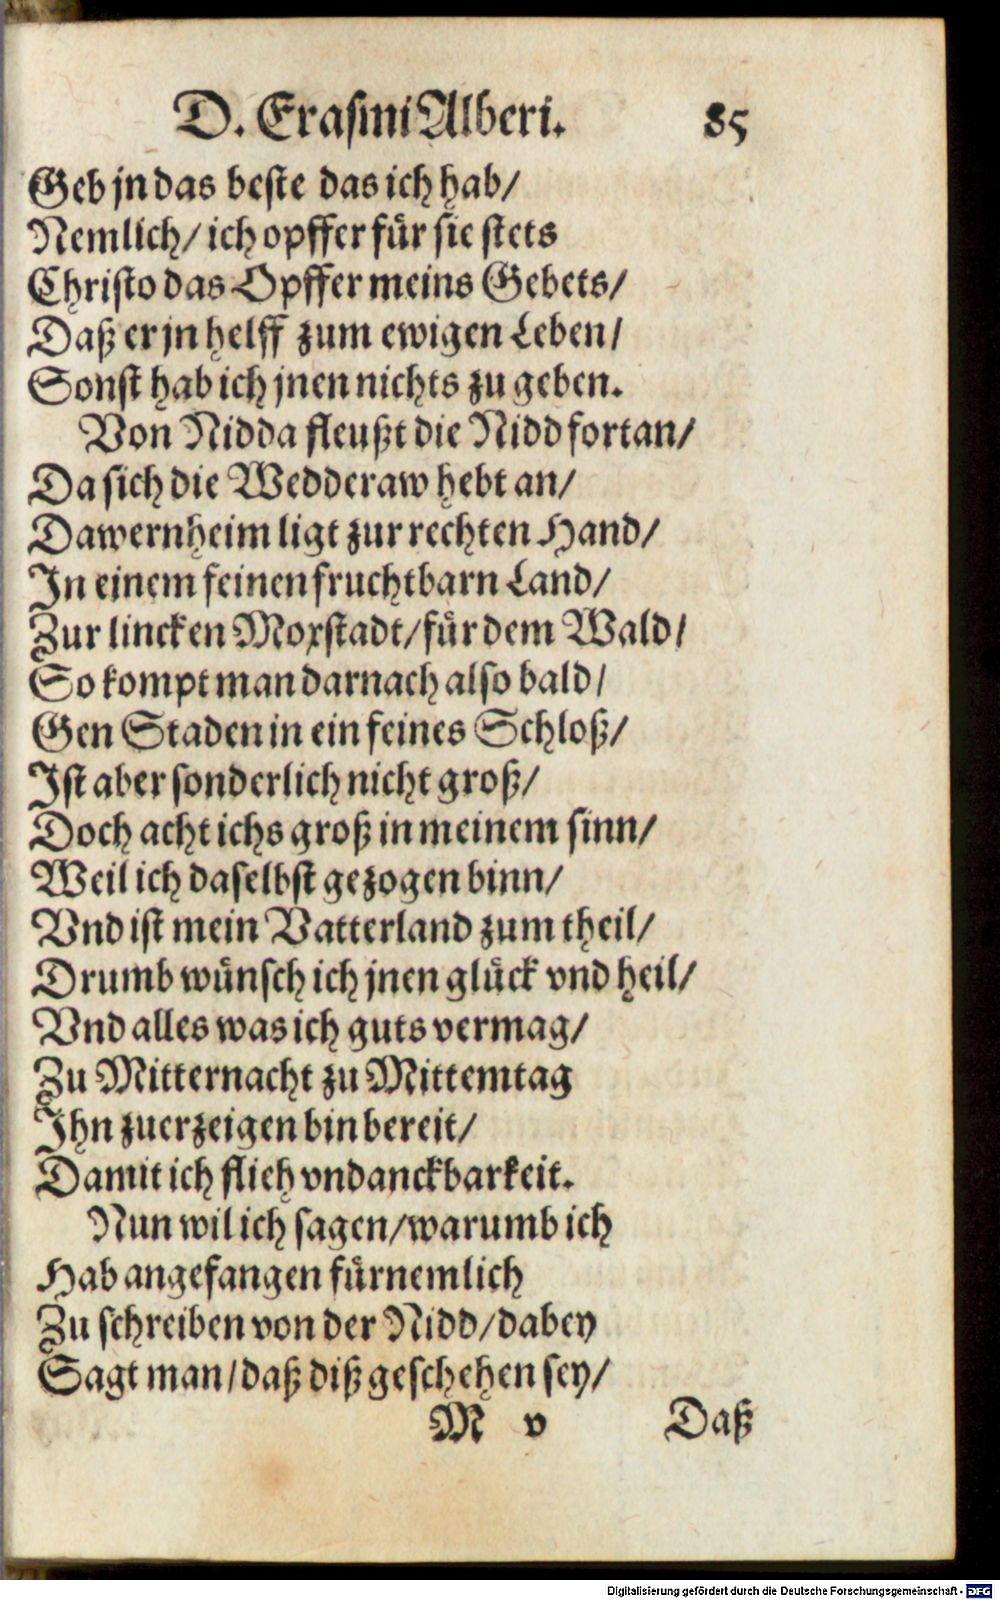 D. Erasmi Alberi. 85
Geb jn das beste das ich hab/
Nemlich/ ich opffer für sie stets
Christo das Opffer meins Gebets/
Daß er jn helff zum ewigen Leben/
Sonst hab ich jnen nichts zu geben.
Von Nidda fleußt die Nidd fortan/
Da sich die Wedderaw hebt an/
Dawernheim ligt zur rechten Hand/
In einem feinen fruchtbarn Land/
Zur lincken Moxstadt/ für dem Wald/
So kompt man darnach also bald/
Gen Staden in ein feines Schloß/
Ist aber sonderlich nicht groß/
Doch acht ichs groß in meinem sinn/
Weil ich daselbst gezogen binn/
Vnd ist mein Vatterland zum theil/
Drumb wünsch ich jnen glück vnd heil/
Vnd alles was ich guts vermag/
Zu Mitternacht zu Mittemtag
Ihn zuerzeigen bin bereit/
Damit ich flieh vndanckbarkeit.
Nun wil ich sagen/ warumb ich
Hab angefangen fürnemlich
Zu schreiben von der Nidd/ dabey
Sagt man/ daß diß geschehen sey/
M v Daß
Digitalisierung gefördert durch die Deutsche Forschungsgemeinschaft - DFG